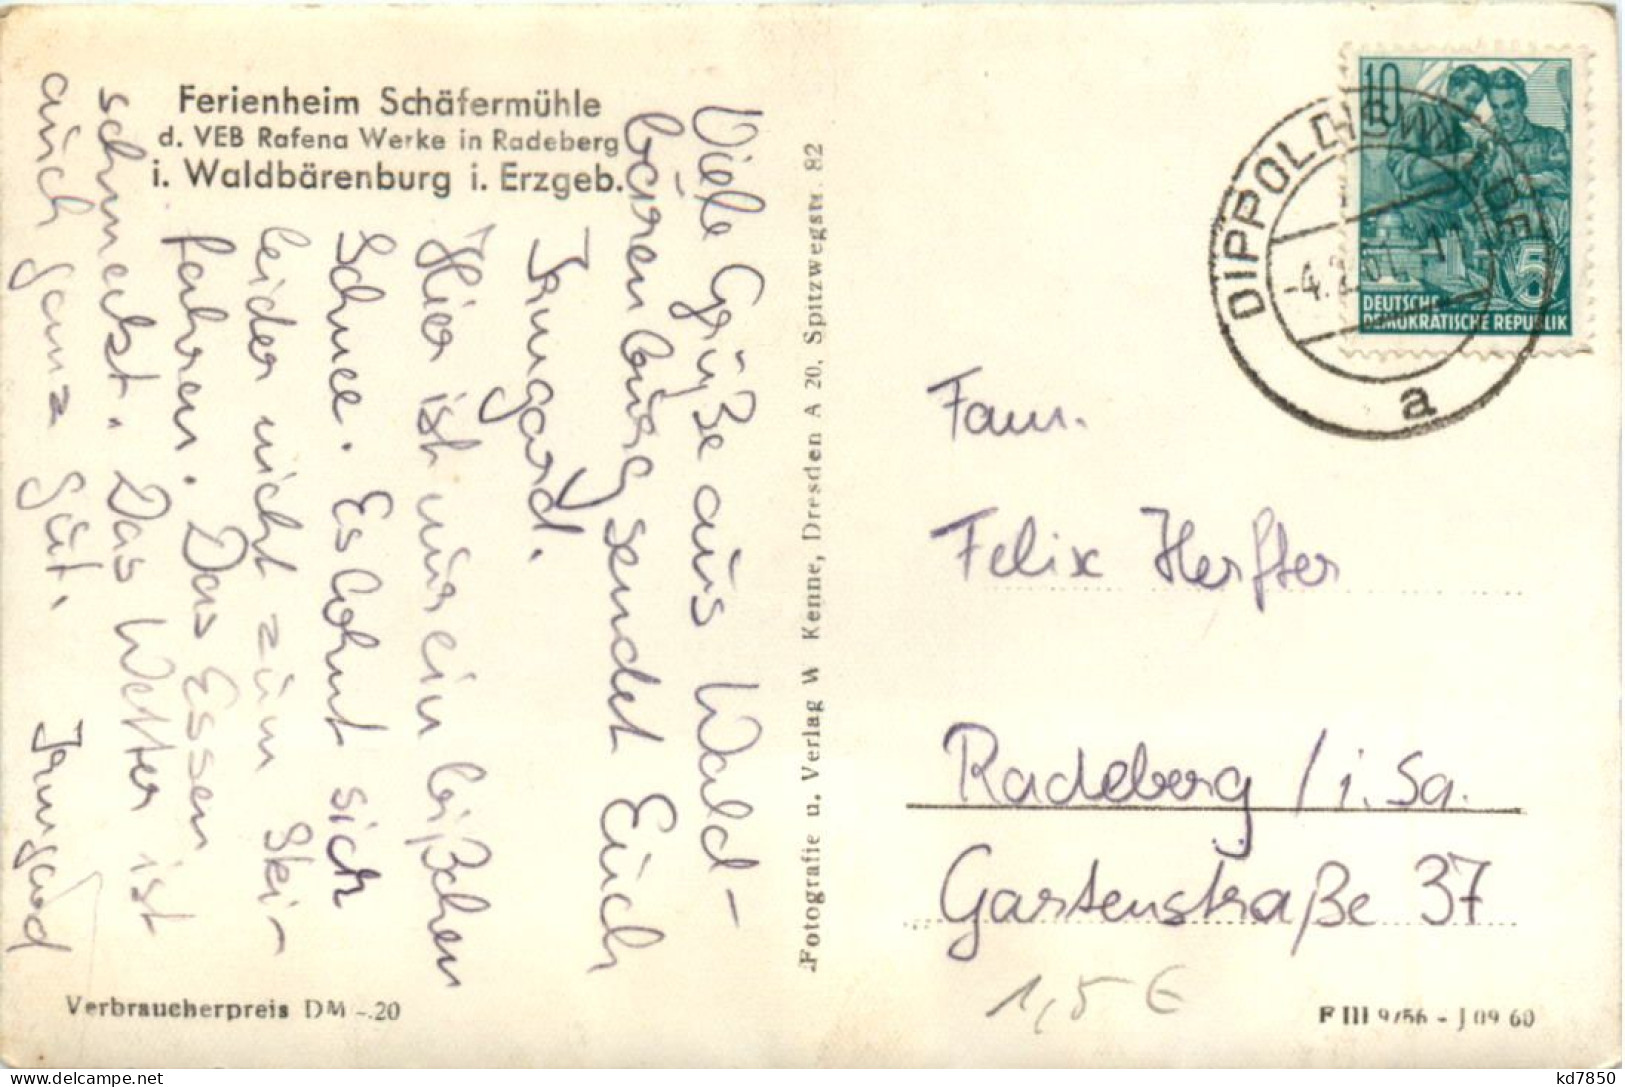 Ferienheim Schäfermühle
d. VEB Rafena Werke in Radeberg
i. Waldbärenburg i. Erzgeb.
Viele Grüße aus Wald-
bärenburg sendet Euch
Irmgard.
Hier ist nur ein bißchen
Schnee. Es lohnt sich
leider nicht zum Ski-
fahren. Das Essen
schmeckt. Das Wetter ist
auch ganz gut. Irmgard
Verbraucherpreis DM -.20
Fotografie u. Verlag W Kenne, Dresden A 20, Spitzwegstr. 82
10
DEUTSCHE
DEMOKRATISCHE REPUBLIK
5
DIPPOLDISWALDE
a
Fam.
Felix Herfter
Radeberg / i. Sa.
Gartenstraße 37
1,5 €
F III 9/56 - J 09 60
kd7850